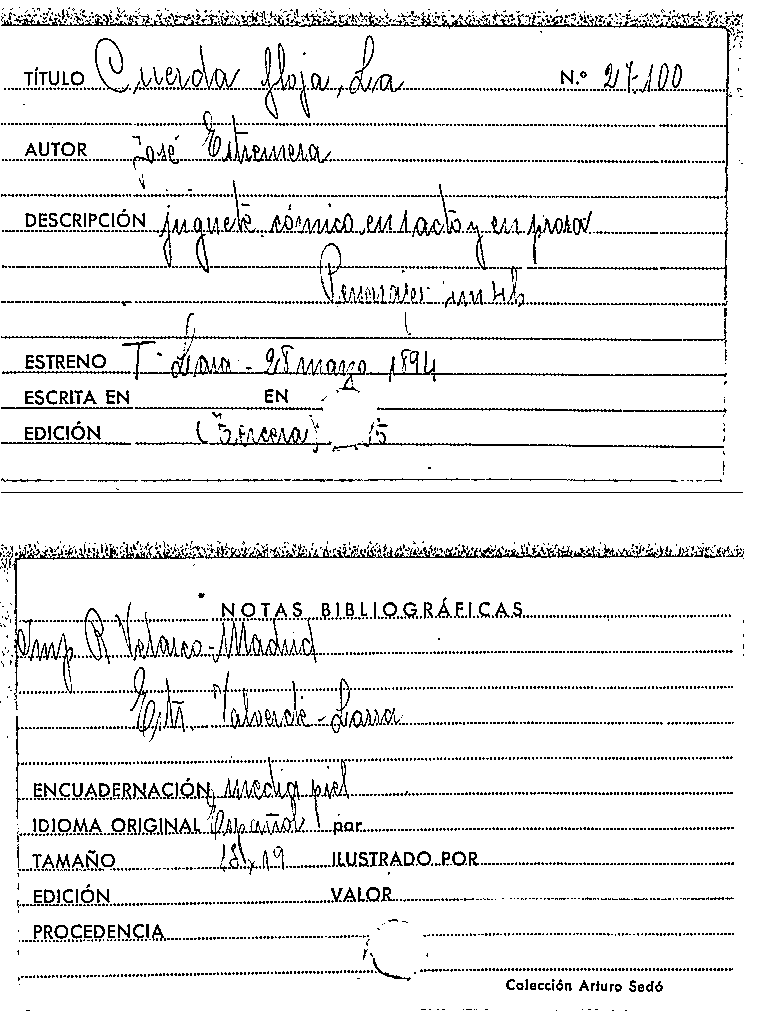 TÍTULO Cuerda floja, La N.º 27-100
AUTOR José Estremera
DESCRIPCIÓN juguete cómico en 1 acto y en prosa
ESTRENO T. Lara - 28 marzo 1894
ESCRITA EN EN
EDICIÓN (Tercera)
NOTAS BIBLIOGRÁFICAS
Imp R Velasco - Madrid
Valverde - Lara
ENCUADERNACIÓN media piel
IDIOMA ORIGINAL Español por
TAMAÑO 19 ILUSTRADO POR
EDICIÓN VALOR
PROCEDENCIA
Colección Arturo Sedó